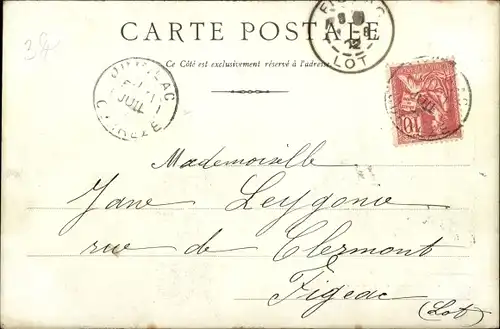 CARTE POSTALE
Ce Côté est exclusivement réservé à l'adresse
LOT
CORRÈZE
JUIL
10
Mademoiselle
Jane Leygonie
rue de Clermont
Figeac
(Lot)